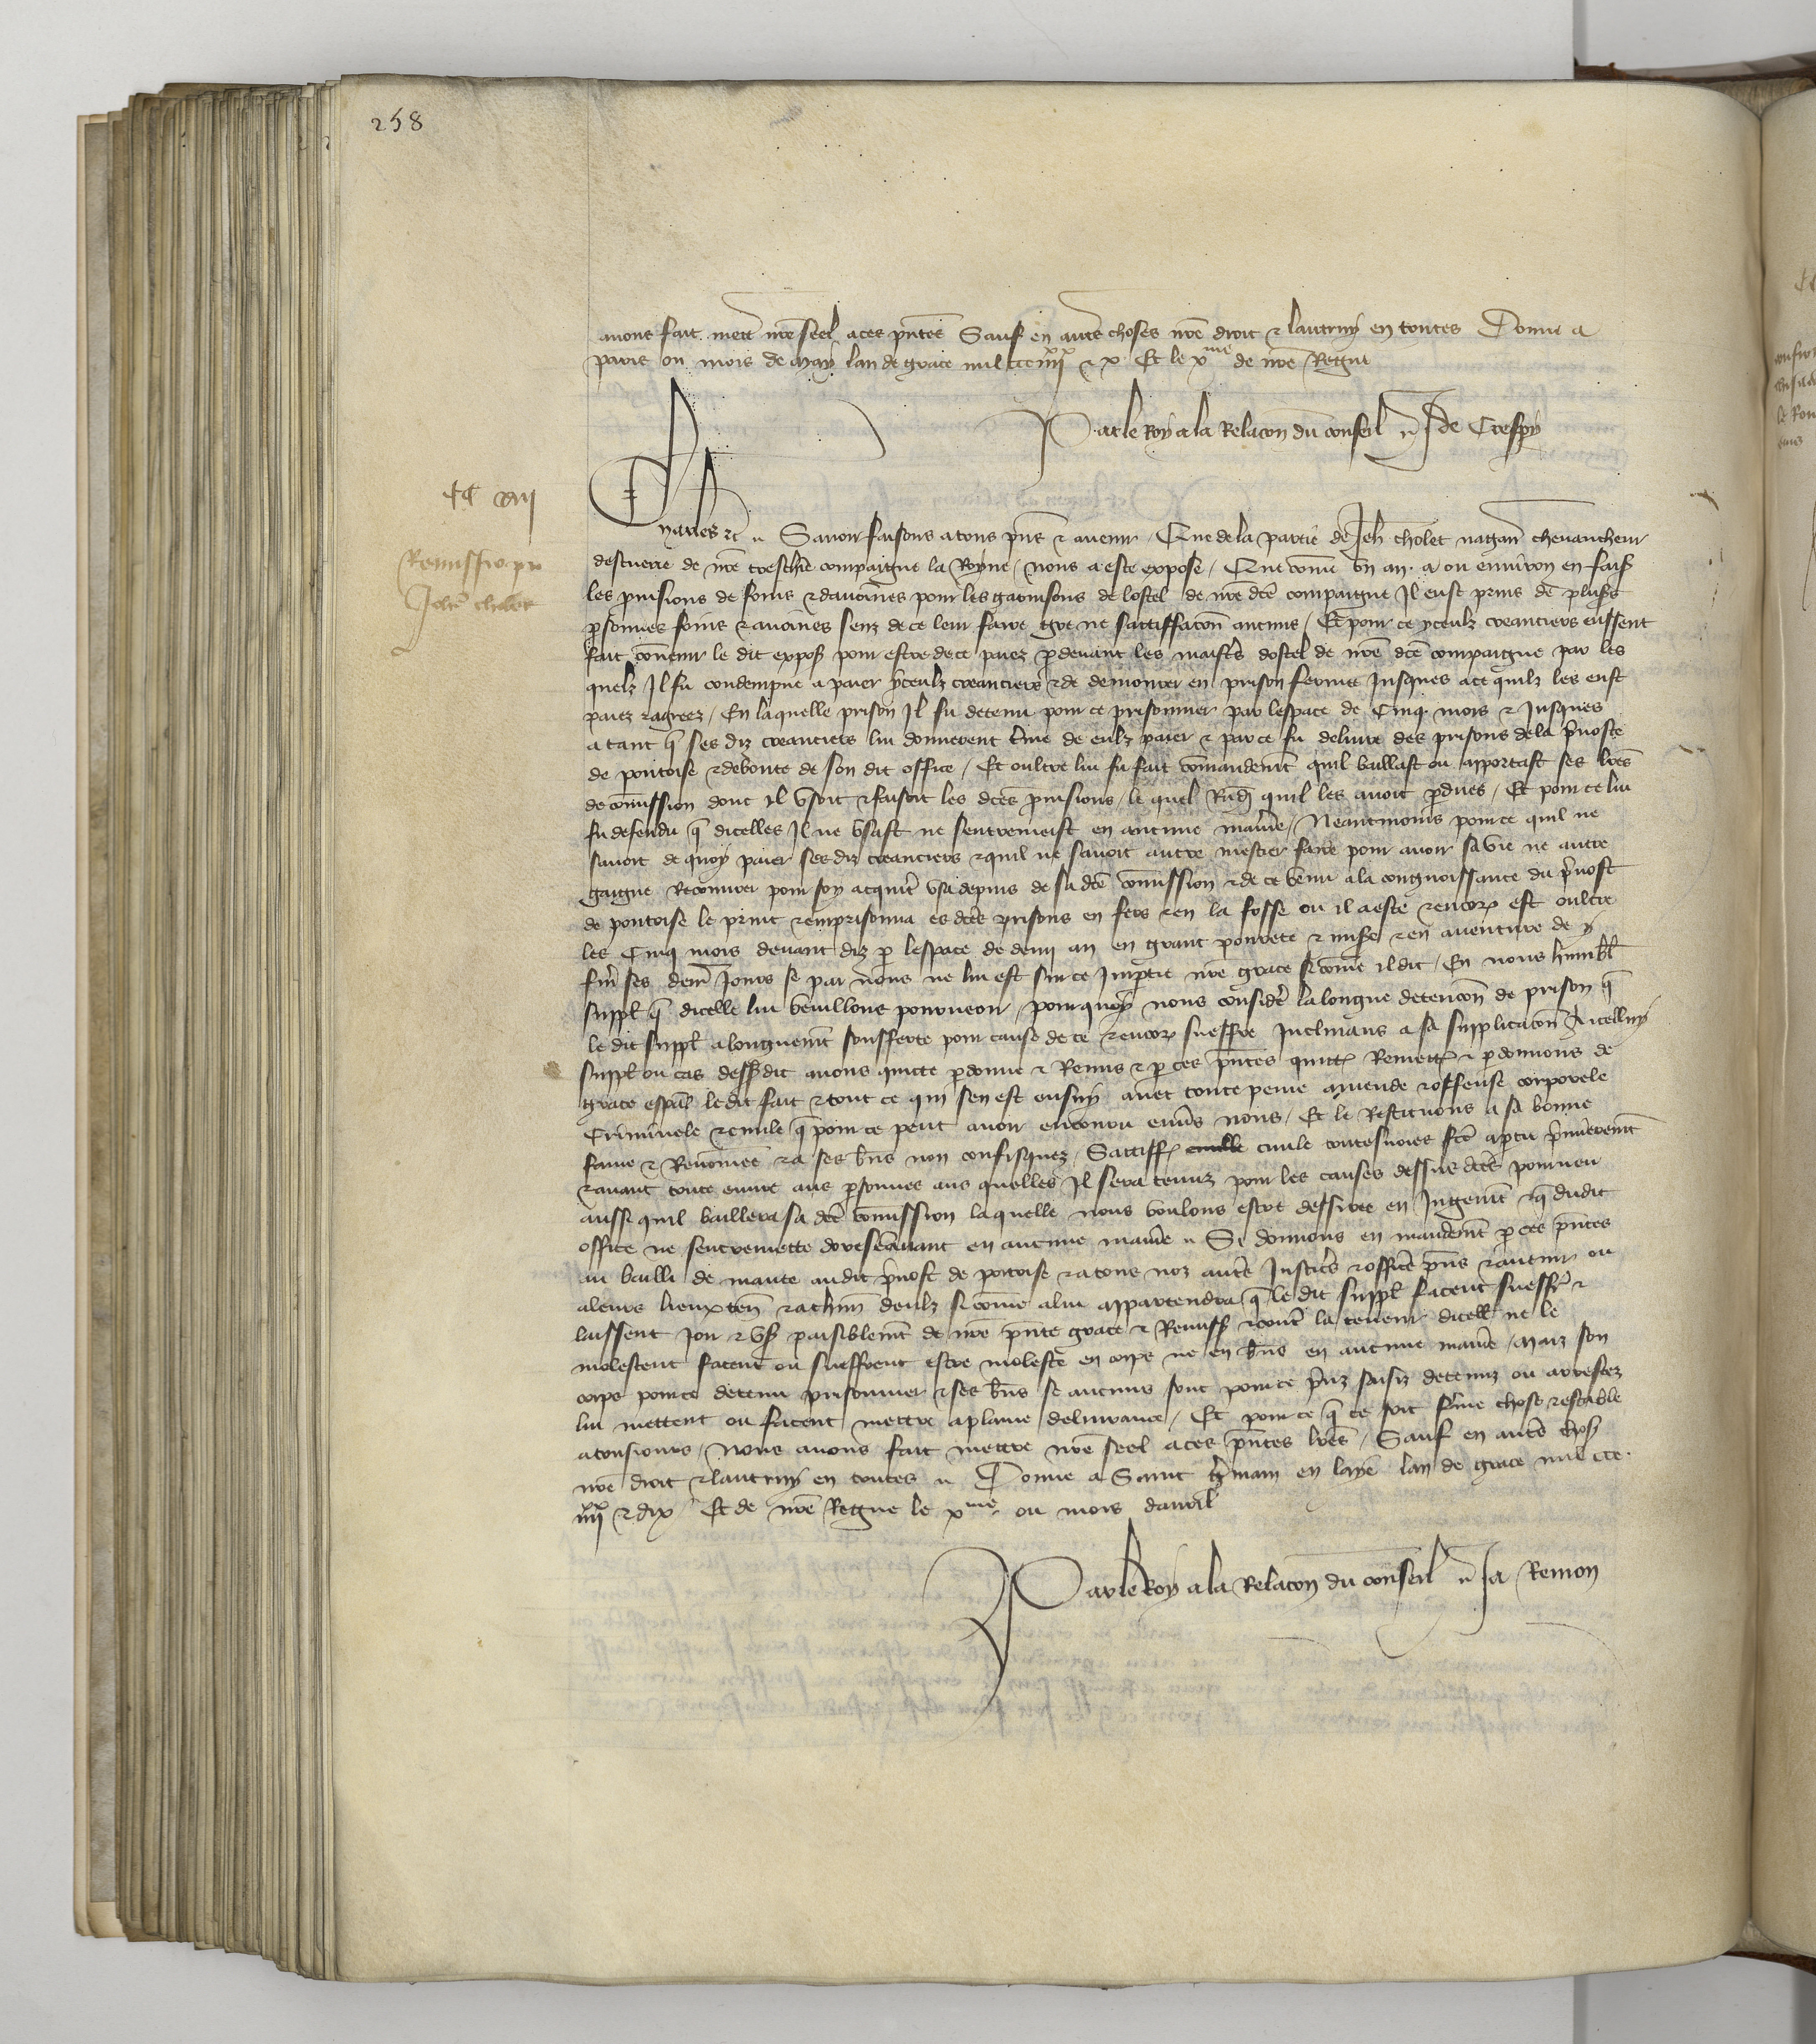 258
avons fait mettr nre seel a ces pntes Sauf en autres choses nre droit & lautruy en toutes Donne a
paris ou mois de may lan de grace mil ccc iiii xx & x Et le x me de nre Regne
Par le Roy a la Relacon du conseil J de Crespy
CC VIII
Charles &c Savoir faisons a tous pns & avenir Que de la partie de Jeh cholet chevaucheur
Remissio pro
Johe cholet
descuierie de nre treschie compaigne la Royne nous a este expose Que comme un an a ou environ en fais
les pruisions de foins & davoines pour les garnisons de lostel de nre dce compaigne Il eust prins de plus
psonnes foins & avoines senz de ce leur faire gre ne sattiffacon aucuns Et pour ce yceulz creanciers eussent
fait convenir le dit expos pour estre de ce paiez pdevant les maistrs dostel de nre dce compaigne par les
quelz Il fu condempne a paier yceulz creanciers & de demourer en prison fermee Jusques a ce quilz les eust
paiez & agreez En laquelle prison Il fu detenu pour ce prisonnier par lespace de Cinq mois & Jusques
a tant q ses diz creanciers lui donnerent tme de eulz paier & par ce fu delivre des prisons de la pvoste
de pontoise & deboute de son dit office Et oultre lui fu fait commandemt quil baillast ou apportast ses lres
de commission dont Il usoit & faisoit les dces pruisions le quel Rndi quil les avoit pdues Et pour ce lui
fu defendu q dicelles Il ne usast ne sentremeist en aucune maniere Neantmoins pour ce quil ne
savoit de quoy paier ses diz creanciers & quil ne savoit autre mestier faire pour avoir sa vie ne autre
gaigne Recouvrer pour soy acquiter usa depuis de sa dce commission & de ce venu a la congnoissance du pvost
de pontoise le print & emprisonna es dces prisons en fers & en la fosse ou il a este & encor est oultre
les Cinq mois devant diz p lespace de demi an en grant povrete & mise & en aventure de y
finir ses dern Jours se par nous ne lui est sur ce Impartie nre grace si comme il dit En nous humbl
suppl q dicelle lui veuillons pourveoir pour quoy nous consider la longue detencon de prison q
le dit suppl a longuemt soufferte pour cause de ce & encor sueffre Inclinans a sa supplicacon A icelluy
suppl ou cas dessusdit avons quicte pdonne & Remis & p ces pntes quitt Remett & pdonnons de
grace espal le dit fait & tout ce qui sen est ensuy avec toute peine amende & offense corporele
Criminele & civile q pour ce peut avoir encouru envs nous Et le Restituons a sa bonne
fame & Renommee & a ses bns non confisquez Sattiff civile toutesvoies fce aptie pmierement
& avant toute euvre aus psonnes aus quelles Il sera tenuz pour les causes dessus dces pourveu
aussi quil baillera sa dce commission laquelle nous voulons estre dessiree en Jugemt & q dudit
office ne sentremette doresenavant en aucune maniere Si donnons en mandemt p ces pntes
au bailli de mante au dit pvost de pontoise & a tous noz autrs Justicrs & officrs pns & avenir ou
a leurs lieux ten & a chun deulz si comme a lui appartendra q le dit suppl facent sueffrt &
laissent Joir & us paisiblemt de nre pnte grace & Remiss & contre la teneur dicelle ne le
molestent facent ou sueffrent estre moleste en corps ne en bns en aucune maniere Mais son
corps pour ce detenu prisonnier & ses bns se aucuns sont pour ce prinz saisiz detenuz ou arrestez
lui mettent ou facent mettre a plaine delivrance Et pour ce q ce soit ferme chose & estable
a tousjours Nous avons fait mettre nre seel a ces pntes lres Sauf en autre chos
nre droit & lautruy en toutes Donne a Saint Germain en laye lan de grace mil ccc
iiii xx & dix Et de nre Regne le x me ou mois davril
Par le Roy a la Relacon du conseil Ja Remon